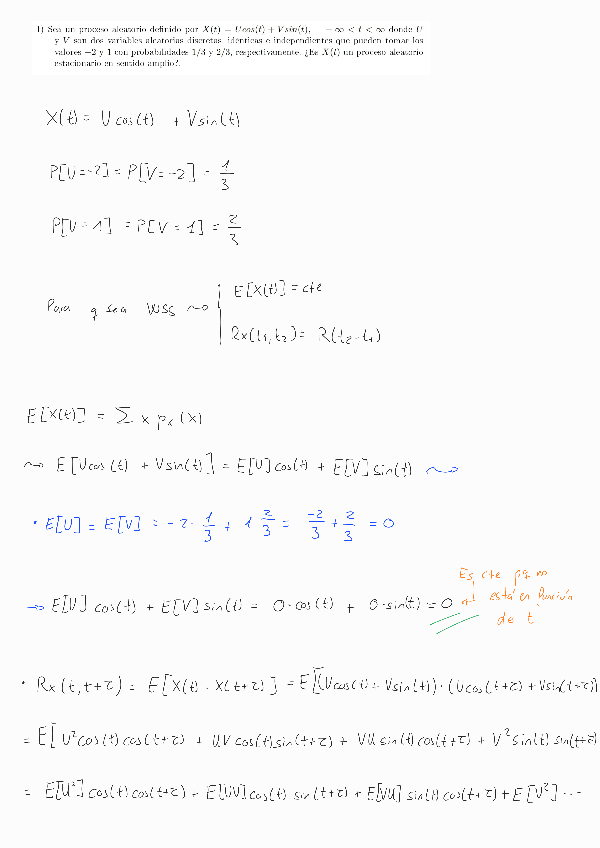 1) Sea un proceso aleatorio definido por X(t) = Ucos(t) + Vsin(t),   −∞ < t < ∞ donde U
y V son dos variables aleatorias discretas, idénticas e independientes que pueden tomar los
valores −2 y 1 con probabilidades 1/3 y 2/3, respectivamente. ¿Es X(t) un proceso aleatorio
estacionario en sentido amplio?.
X(t) = U cos(t) + V sin(t)
P[U=-2] = P[V=-2] = 1/3
P[U=1] = P[V=1] = 2/3
Para q sea WSS ⇝ { E[X(t)] = cte
Rx(t1,t2) = R(t2-t1)
E[X(t)] = Σ x px(x)
⇝ E[Ucos(t) + Vsin(t)] = E[U]cos(t) + E[V]sin(t) ⇝
• E[U] = E[V] = -2 · 1/3 + 1 2/3 = -2/3 + 2/3 = 0
⇝ E[U] cos(t) + E[V] sin(t) = 0·cos(t) + 0·sin(t) = 0
Es cte pq no
está en función
de t
• Rx(t,t+τ) = E[X(t) · X(t+τ)] = E[(Ucos(t) + Vsin(t)) · (Ucos(t+τ) + Vsin(t+τ))]
= E[U²cos(t)cos(t+τ) + UVcos(t)sin(t+τ) + VUsin(t)cos(t+τ) + V²sin(t)sin(t+τ)
= E[U²]cos(t)cos(t+τ) + E[UV]cos(t)sin(t+τ) + E[VU]sin(t)cos(t+τ) + E[V²] ...